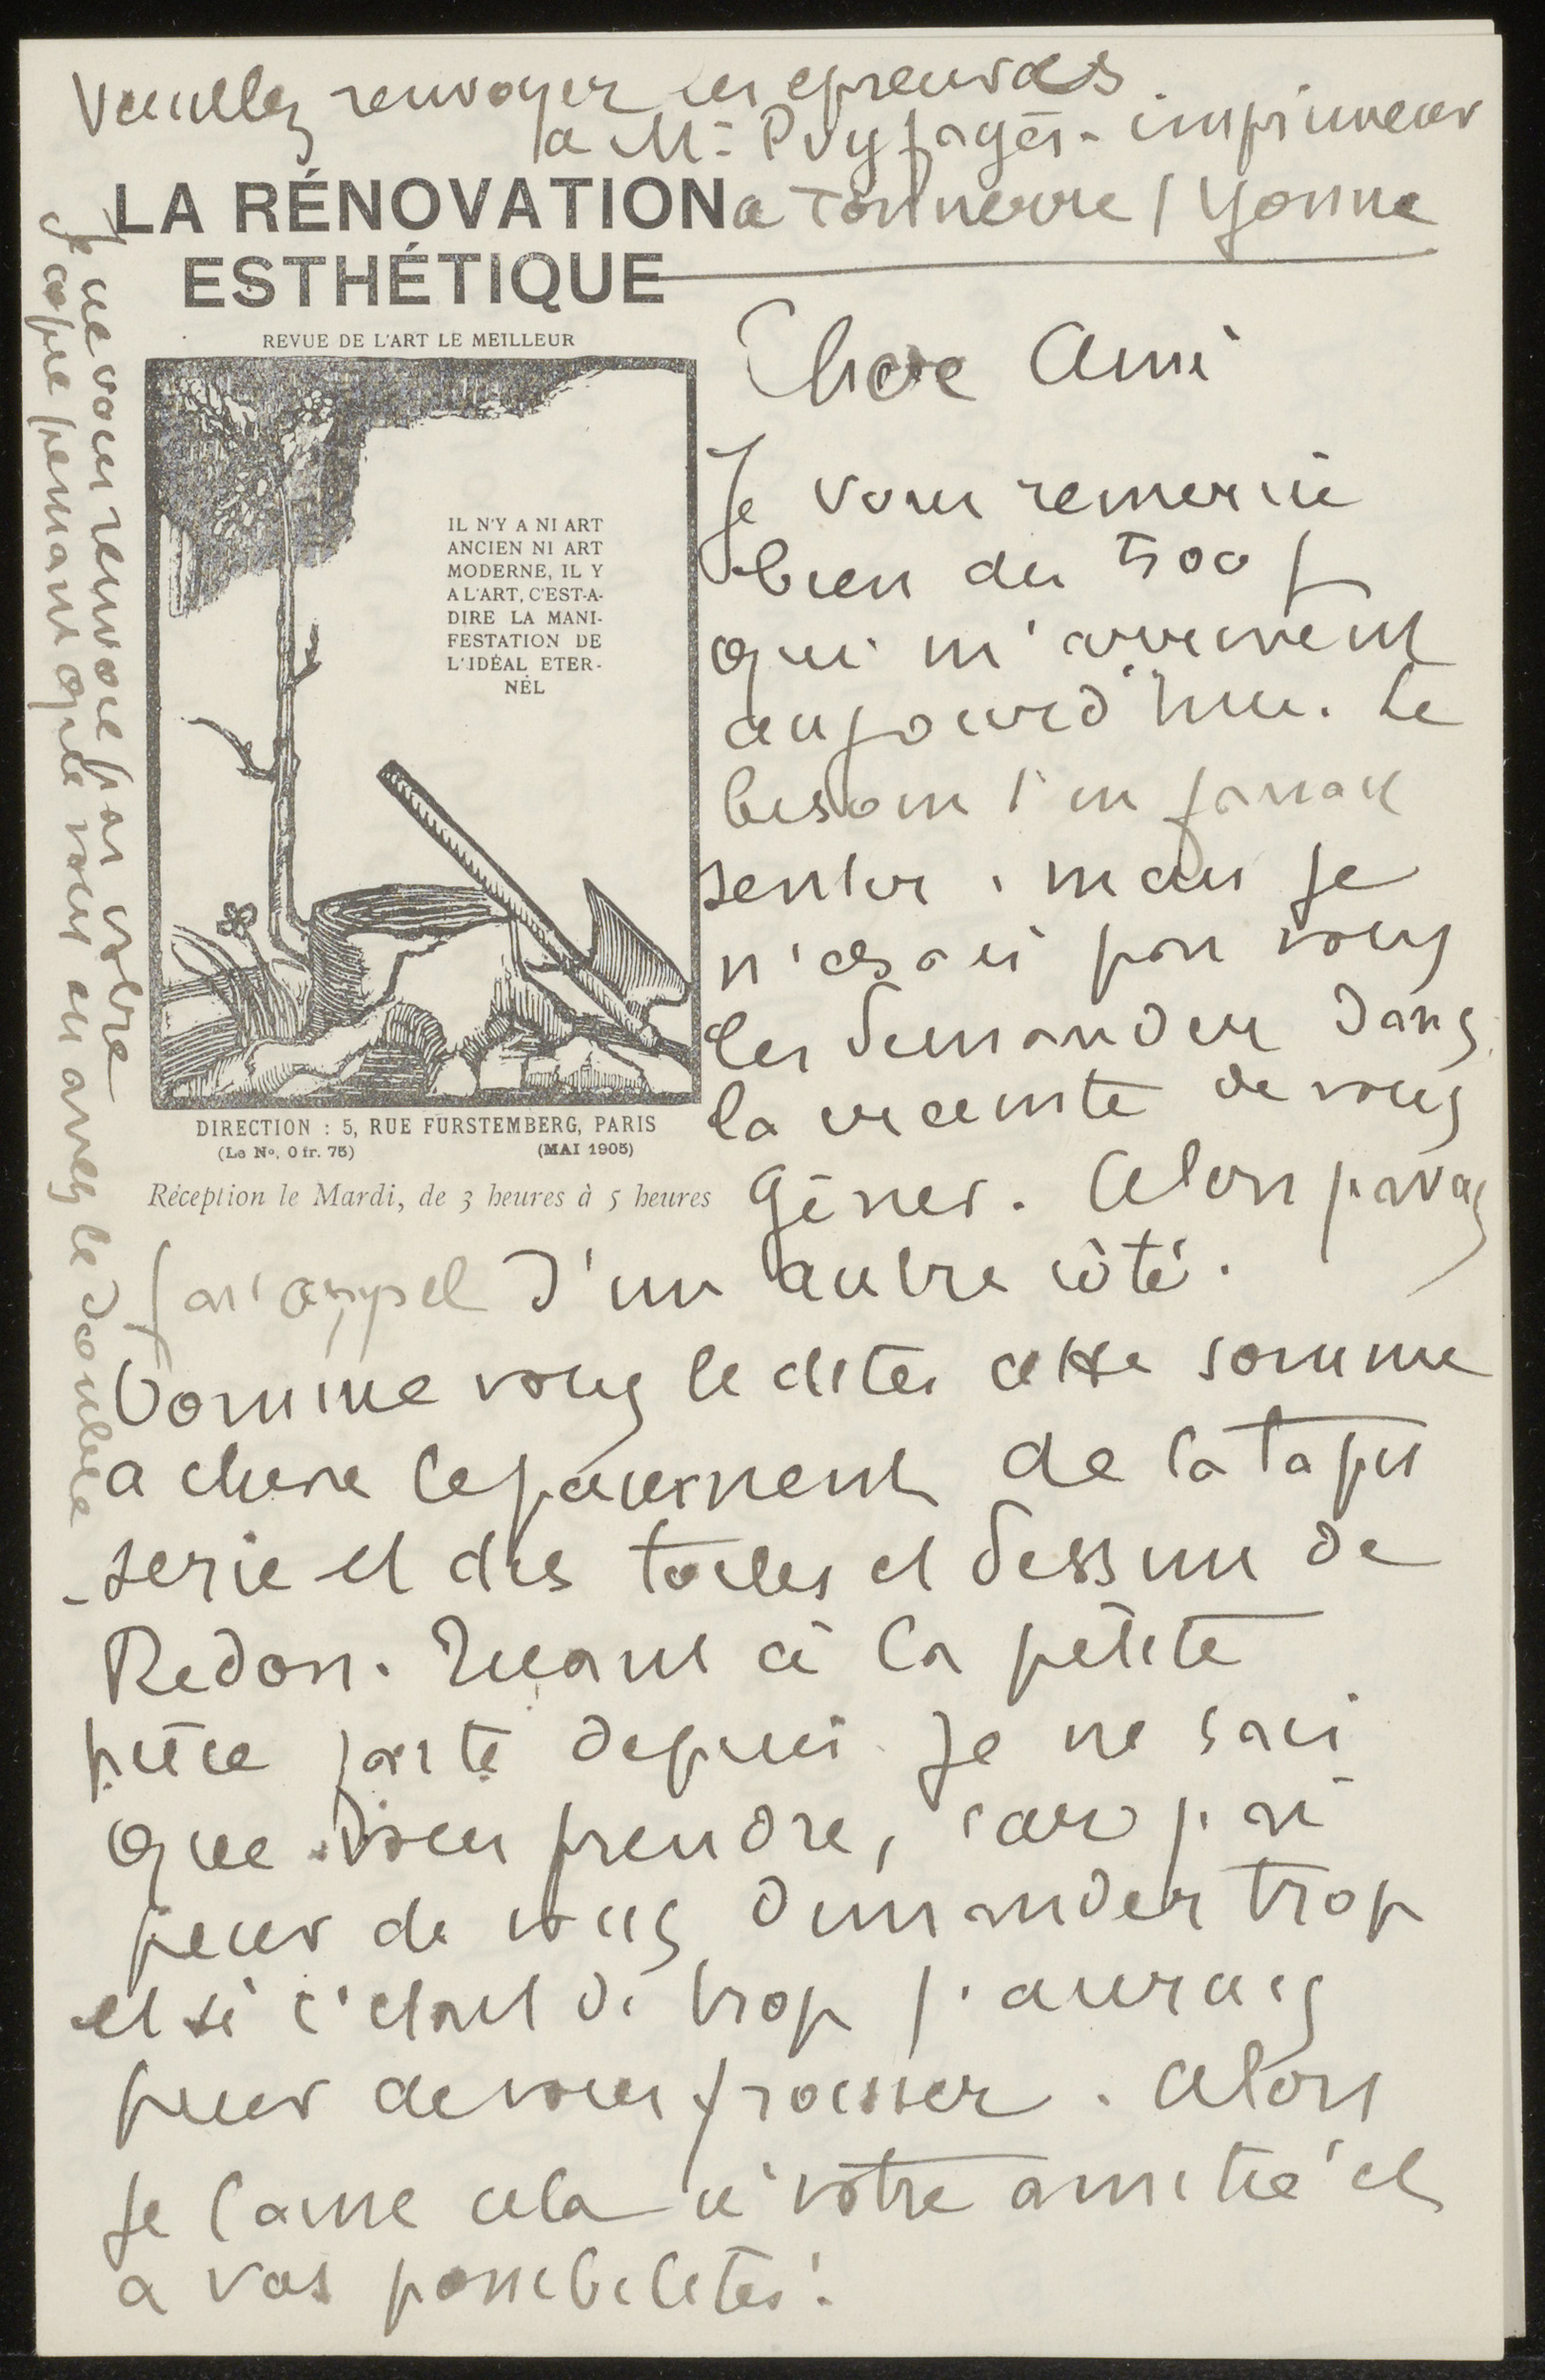 Veuillez renvoyer les epreuves
a Mr Puyfagès - imprimeur
a Tonnerre / Yonne
LA RÉNOVATION
ESTHÉTIQUE
REVUE DE L'ART LE MEILLEUR
IL N'Y A NI ART
ANCIEN NI ART
MODERNE, IL Y
A L'ART, C'EST-A-
DIRE LA MANI-
FESTATION DE
L'IDÉAL ETER-
NEL
DIRECTION : 5, RUE FURSTEMBERG, PARIS
(Le No, 0 fr. 75) (MAI 1905)
Réception le Mardi, de 3 heures à 5 heures
Cher Ami
Je vous remercie
bien des 500 f
qui m'arrivent
aujourd'hui. Le
besoin s'en faisait
sentir. mais je
n'osais pas vous
les demander dans
la crainte de vous
gêner. Alors j'avais
fait appel d'un autre côté.
Comme vous le dites cette somme
achève le paiement de la tapis
-serie et des toiles et dessins de
Redon. Quant à la petite
pièce faite depuis je ne sais
que vous prendre, car j'ai
peur de vous demander trop
et si c'était de trop j'aurais
peur de vous froisser. Alors
je laisse cela à votre amitié et
a vos possibilités.
Je ne vous renvoie pas votre
copie pensant que vous en avez le double